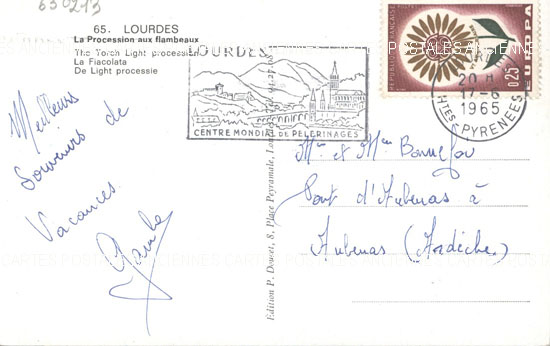 650213
65. LOURDES
La Procession aux flambeaux
The Torch Light procession
La Fiacolata
De Light processie
LOURDES
CENTRE MONDIAL DE PELERINAGES
REPUBLIQUE FRANCAISE
EUROPA
0,25
20 H
17-6
1965
HTES PYRENEES
Meilleurs
Souvenirs de
Vacances
Mr et Mme Bonnefou
Pont d'Aubenas à
Aubenas (Ardèche)
Edition P. Doucet, 8, Place Peyramale, Lourdes
CARTES POSTALES ANCIENNES